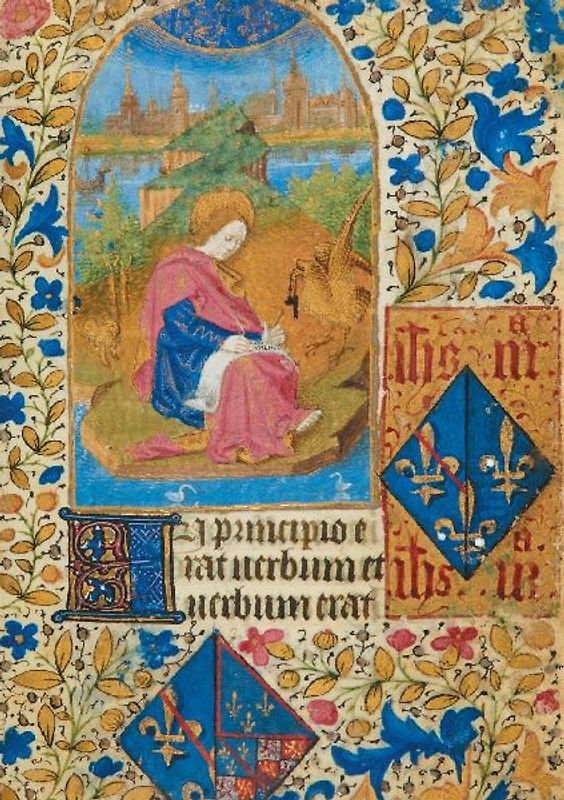 In principio e
rat uerbum et
uerbum erat
ihs mᵃ
ihs mᵃ